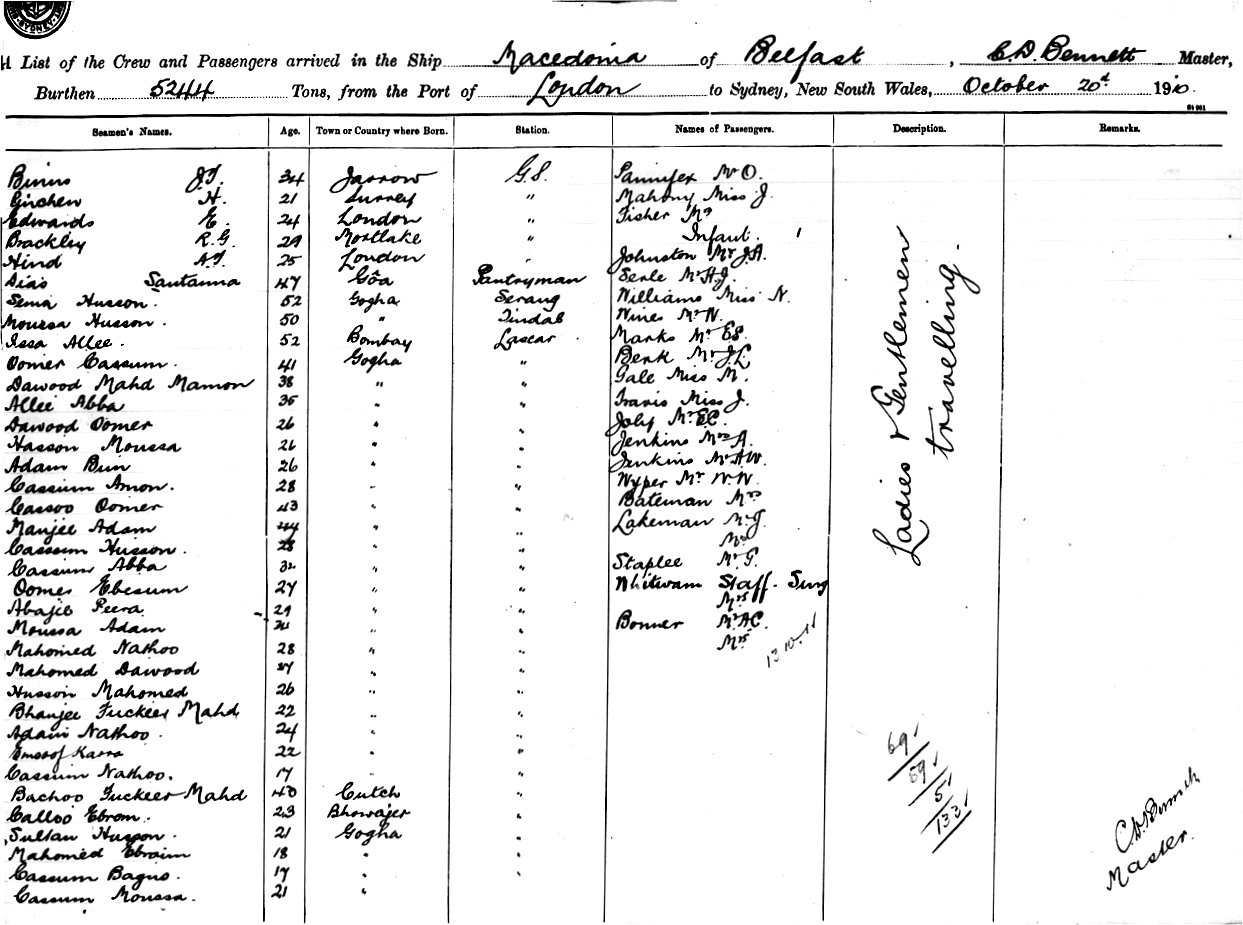 SYDNEY
List of the Crew and Passengers arrived in the Ship Macedonia of Belfast, C.D. Bennett Master,
Burthen 5244 Tons, from the Port of London to Sydney, New South Wales, October 20th 1910.
Seamen's Names. Age. Town or Country where Born. Station. Names of Passengers. Description. Remarks.
Binns J.T. 34 Jarrow G.S. Pannifex Mr O.
H. 21 Surrey " Mahony Miss J.
Edwards E. 24 London " Fisher Mrs
Brackley R.G. 29 Mortlake " Infant 1
Hind A.T. 25 London " Johnston Mr J.A.
Dias Santanna 47 Goa Pantryman Serle Mr H.J.
Sema Husson. 52 Gogha Serang Williams Miss N.
Moussa Husson. 50 " Tindal Wines Mr W.
Issa Allee. 52 Bombay Lascar Marks Mr E.S.
Oomer Cassum. 41 Gogha " Berk Mr J.L.
Dawood Mahd Mamon 38 " " Gale Miss M.
Allee Abba 35 " " Travis Miss J.
Dawood Oomer 26 " " Mr E.C.
Hasson Moussa 26 " " Jenkins Mrs A.
Adam Bun 26 " " Jenkins Mr A.W.
Cassum Amon. 28 " " Wyper Mr W.W.
Cassoo Oomer 43 " " Bateman Mrs
Manjee Adam 44 " " Lakeman Mr J.
Cassum Husson. 28 " " Mrs
Cassum Abba 32 " " Staplee Mr G.
Oomer Ebesum 27 " " Whitwam Staff-Surg
Abajie Peera 29 " " Mrs
Moussa Adam 21 " " Bonner Mr A.C.
Mahomed Nathoo 28 " " Mrs
Mahomed Dawood 27 " "
Husson Mahomed 26 " "
Bhanjee Fuckeer Mahd 22 " "
Adam Nathoo. 24 " "
Karra 22 " "
Cassum Nathoo. 17 " "
Bachoo Fuckeer Mahd 40 Cutch "
Calloo Ebrom. 23 Bhowajer "
Sultan Husson. 21 Gogha "
Mahomed Ebraim 18 " "
Cassum Bagus. 17 " "
Cassum Moussa. 21 "
Ladies & Gentlemen
travelling.
69
59
5
133
C.D. Bennett
Master.